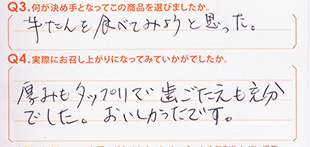 Q3.何が決め手となってこの商品を選びましたか。
牛たんを食べてみようと思った。
Q4.実際にお召し上がりになってみていかがでしたか。
厚みもタップリで歯ごたえも充分
でした。おいしかったです。